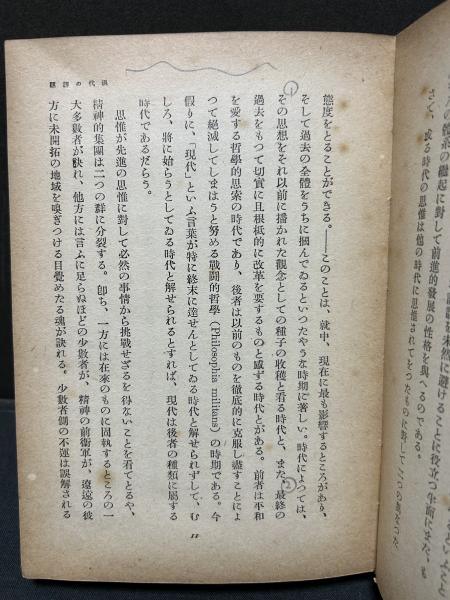 さて、或る時代の思惟は他の時代に思惟されてをつたものに對して
現代の課題
態度をとることができる。――このことは、就中、現在に最も影響するところがあり、
そして過去の全體をうちに掴んでゐるといつたやうな時期に著しい。時代によつては、
その思想をそれ以前に播かれた觀念としての種子の收穫と看る時代と、また、最終の
過去をもつて切實に且根柢的に改革を要するものと感ずる時代とがある。前者は平和
を愛する哲學的思索の時代であり、後者は以前のものを徹底的に克服し盡すことによ
つて絕滅してしまはうと努める戰鬪的哲學(Philosophia militans)の時期である。今
假りに、「現代」といふ言葉が特に終末に達せんとしてゐる時代と解せられずして、む
しろ、將に始らうとしてゐる時代と解せられるとすれば、現代は後者の種類に屬する
時代であるだらう。
思惟が先進の思惟に對して必然の事情から挑戰せざるを得ないことを看てとるや、
精神的集團は二つの群に分裂する。卽ち、一方には在來のものに固執するところの一
大多數者が訣れ、他方には言ふに足らぬほどの少數者が、精神の前衞軍が、遼遠の彼
方に未開拓の地域を嗅ぎつける目覺めたる魂が訣れる。少數者側の不運は誤解される
11
①
②